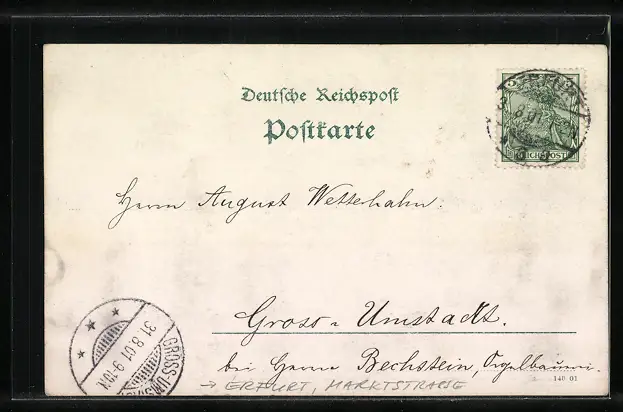 Deutsche Reichspost
Postkarte
REICHSPOST
Herrn August Wetterhahn.
Gross-Umstadt.
bei Herrn Bechstein, Orgelbauerei.
→ ERFURT, MARKTSTRASSE
148 01
31.8.01 9-10N.
GROSS-UMSTADT